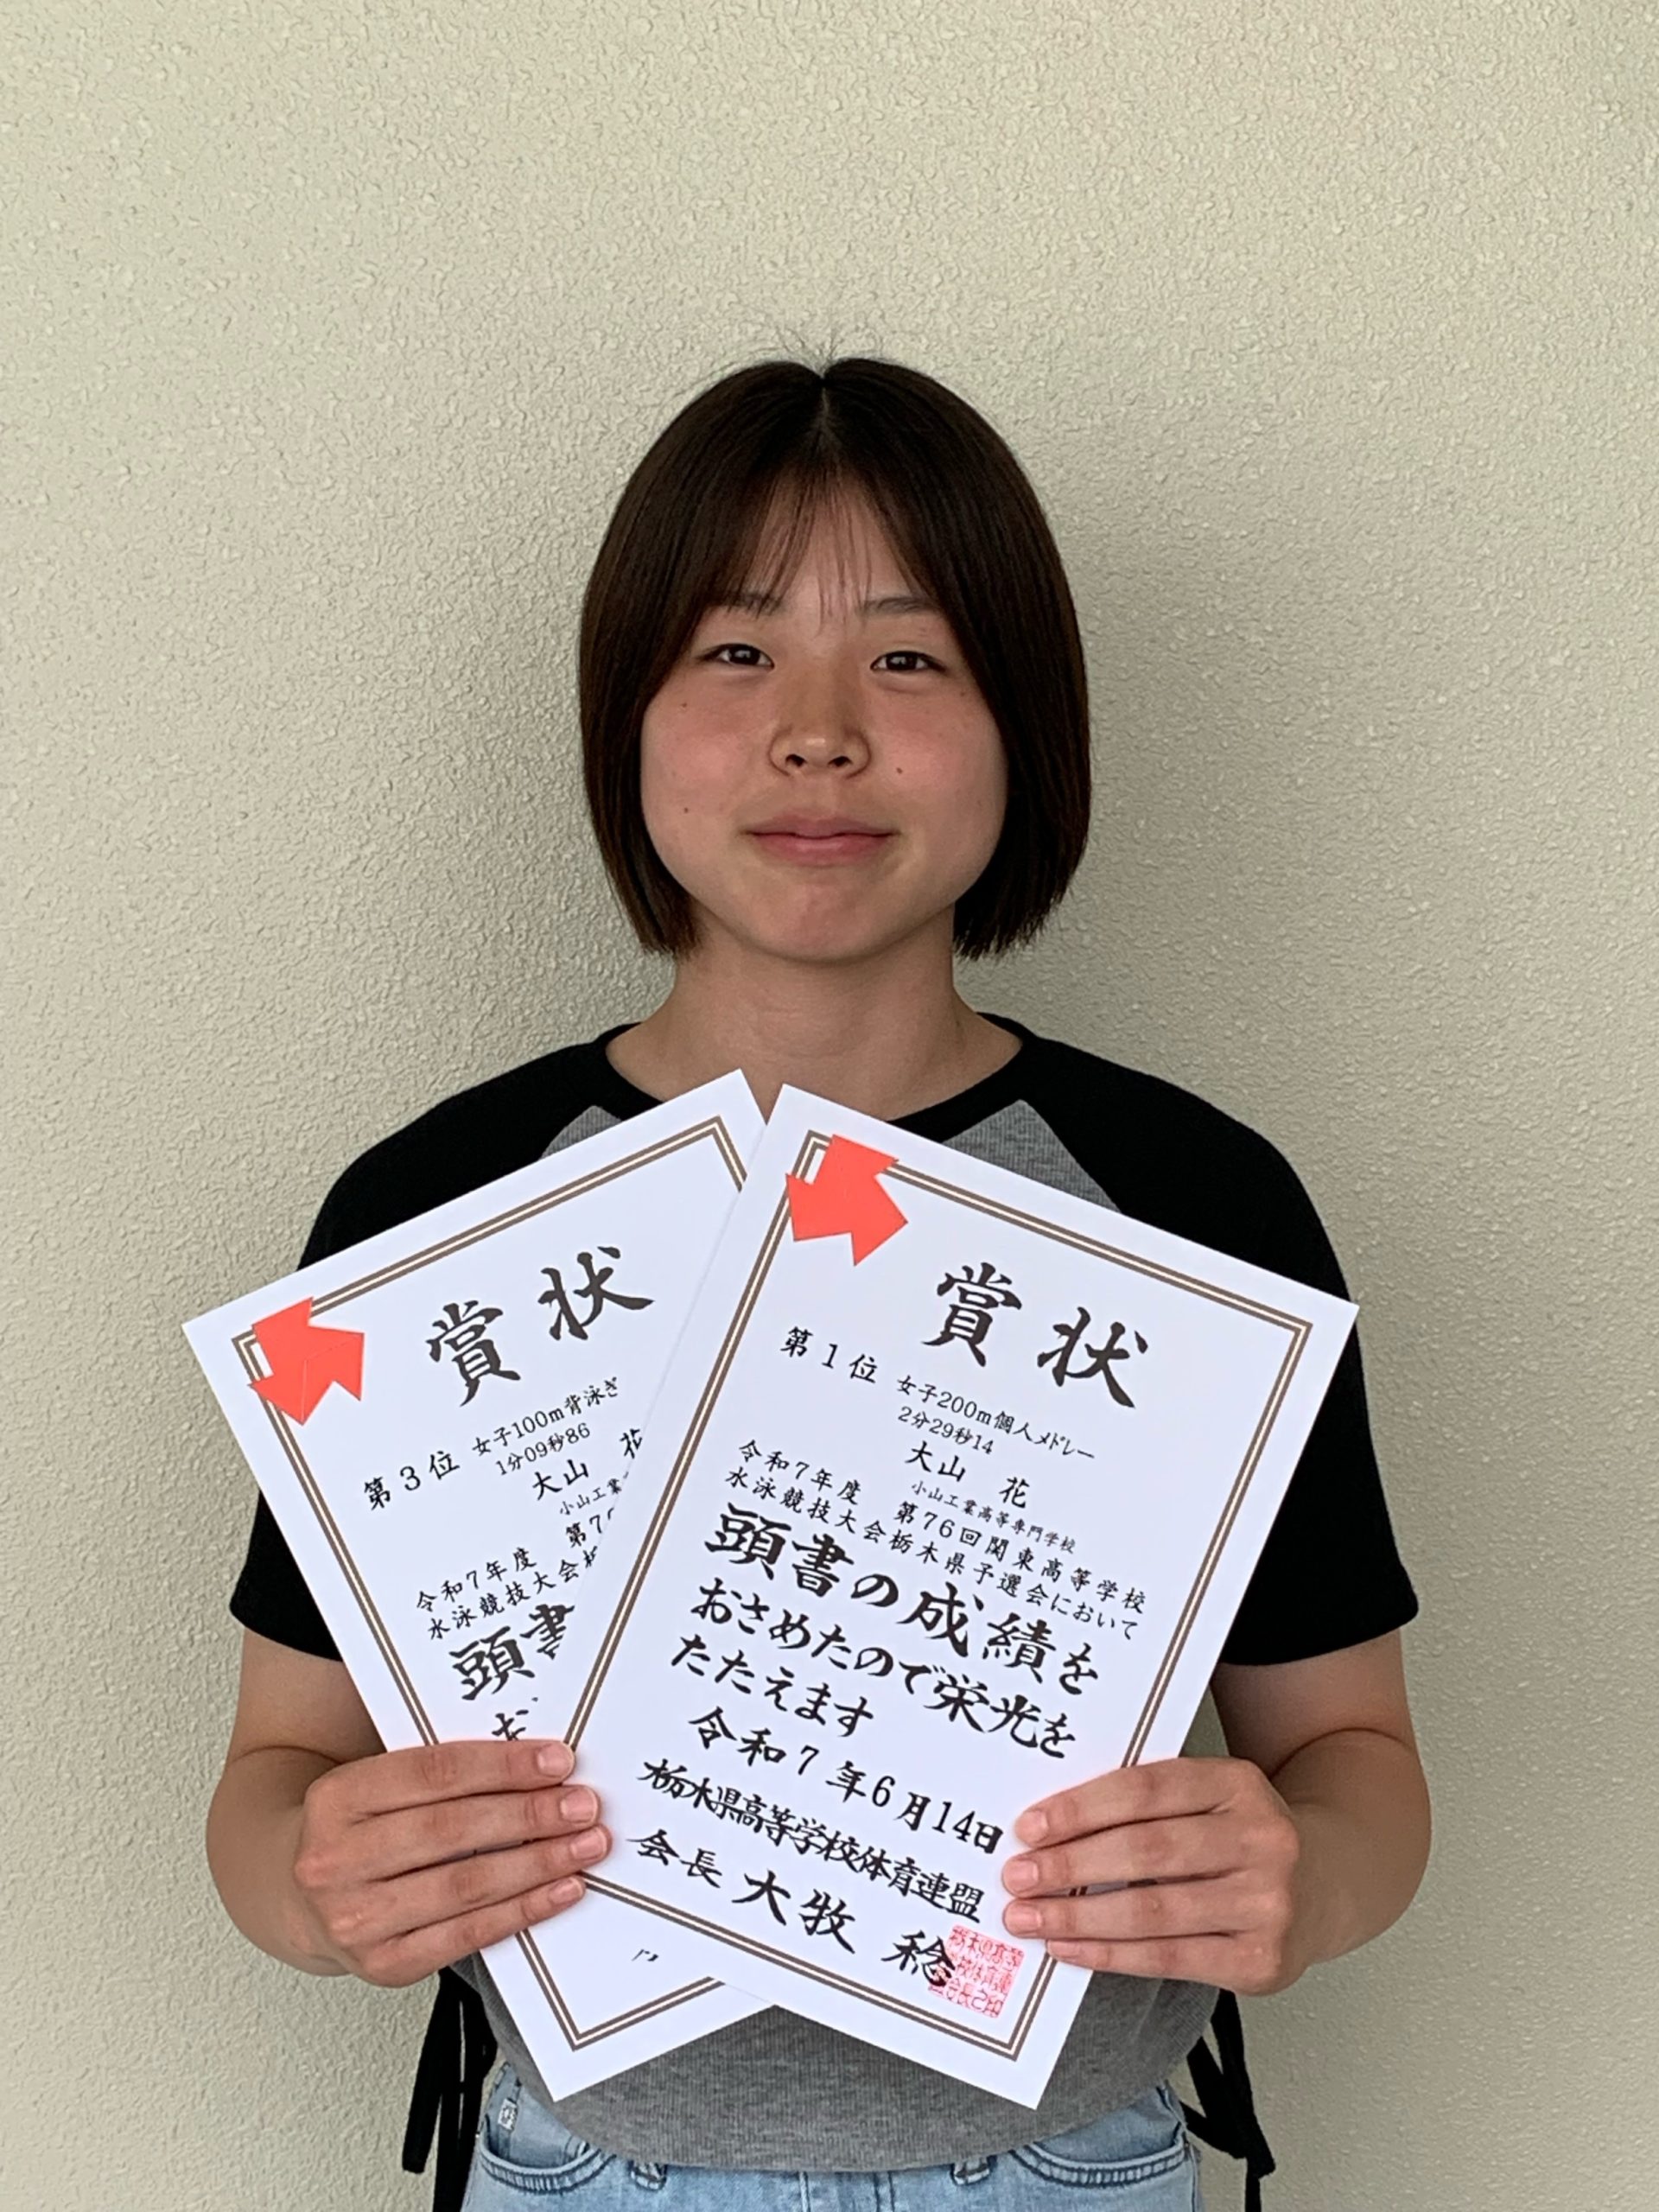 賞状
第3位 女子100m背泳ぎ
1分09秒86
大山 花
小山工業
令和7年度 第7
水泳競技大会栃
頭書
お
賞状
第1位 女子200m個人メドレー
2分29秒14
大山 花
小山工業高等専門学校
令和7年度 第76回関東高等学校
水泳競技大会栃木県予選会において
頭書の成績を
おさめたので栄光を
たたえます
令和7年6月14日
栃木県高等学校体育連盟
会長 大牧 稔